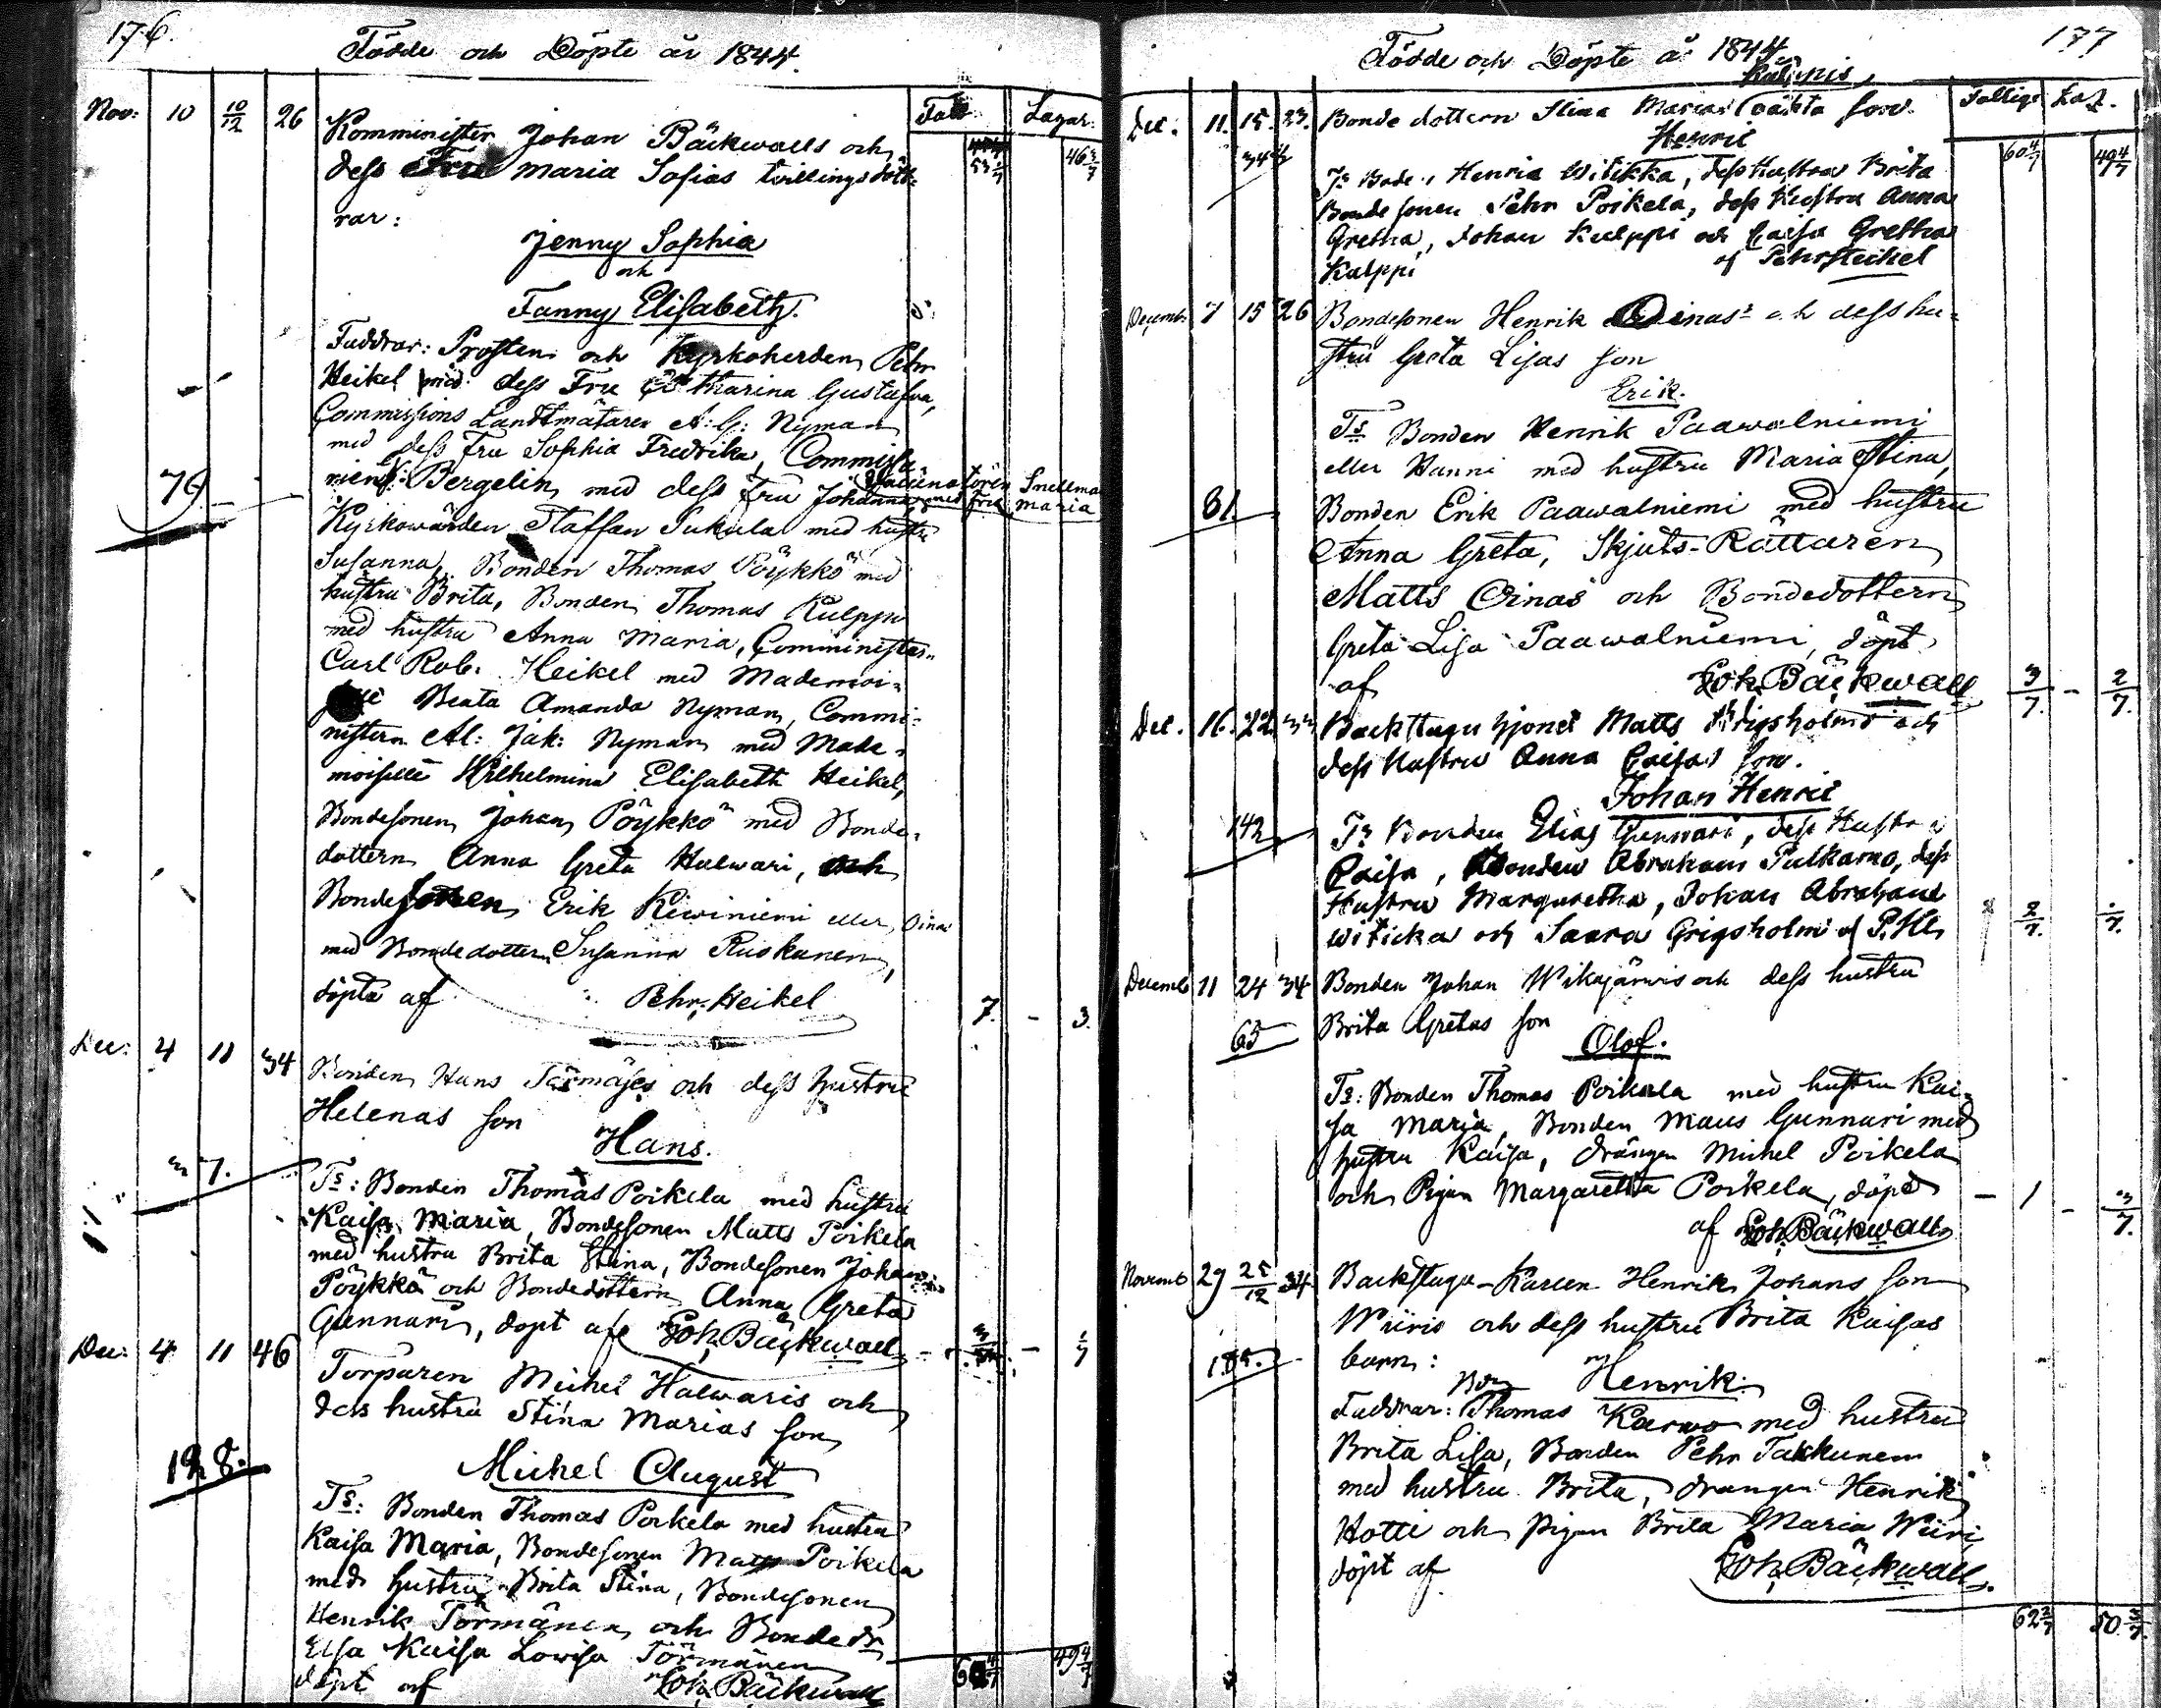 176.
Födde och Döpte år 1844.
Nov: 10 10/12 26
Komminister Johan Bäckwalls och
dess Fru Maria Sofias tvillingsdött-
rar:
Lagar:
46 3/7
Jenny Sophia
och
Fanny Elisabeth.
Faddrar: Prosten och Kyrkoherden Pehr
Heikel med dess Fru Catharina Gustafva,
Commissions Landtmätaren A: G: Nyman
med dess Fru Sophia Fredrika,
Bergelin med dess Fru Johanna, med Fru Maria
Snellman
79
Kyrkowärden Staffan Sukula med hustru
Susanna, Bonden Thomas Pöykkö med
hustru Brita, Bonden Thomas Kulppi
med hustru Anna Maria, Comminister
Carl Rob: Heikel med Mademoi-
Beata Amanda Nyman, Commi-
nistern Al: Jak: Nyman med Made-
moiselle Wilhelmina Elisabeth Heikel,
Bondesonen Johan Pöykkö med Bonde-
dottern Anna Greta Halwari, och
Bondesonen Erik Kiwiniemi eller Oinas
med Bondedottern Susanna Ruokanen,
döpta af Pehr Heikel
7. - 3.
Dec: 4 11 34
Bonden Hans Törmäjes och dess hustru
Helenas son
Hans.
7.
Ts: Bonden Thomas Poikela med hustru
Kaisa Maria, Bondesonen Matts Poikela
med hustru Brita Stina, Bondesonen Johan
Pöykkö och Bondedottern Anna Greta
Gunnari, döpt af Joh. Bäckwall
Dec: 4 11 46
Torparen Michel Halwaris och
dess hustru Stina Marias son
128.
Michel August
Ts: Bonden Thomas Poikela med hustru
Kaisa Maria, Bondesonen Matts Poikela
med hustru Brita Stina, Bondesonen
Henrik Törmänen och Bonded:r
Elsa Kaisa Lovisa Törmänen
döpt af Joh. Bäckwall
60 4/7 49 4/7
177
Födde och Döpte år 1844
Kulppis
Dec. 11. 15. 23. Bonde dottern Stina Marias oäkta son.
Henric
60 4/7 49 4/7
34
Henric Witikka, dess Hustru Brita
Bondesonen Pehr Poikela, dess Hustru Anna
Gretha, Johan Kulppi och Caisa Gretha
Kulppi af Pehr Heikel
Decemb. 7 15 26 Bondesonen Henrik Oinas's och dess hu-
stru Greta Lisas son
Erik.
Ts Bonden Henrik Paawalniemi
eller Hanni med hustru Maria Stina,
81.
Bonden Erik Paawalniemi med hustru
Anna Greta, Skjuts-Rättaren
Matts Oinas och Bondedottern
Greta Lisa Paawalniemi, döpt
af Joh. Bäckwall
3/7. - 2/7.
Dec. 16. 22. 33 Backstugu hjonet Matts Grigsholms och
dess Hustru Anna Caisas son.
Johan Henric
142
Ts Bonden Elias Gunnari, dess Hustru
Caisa, Bonden Abraham Pulkamo, dess
Hustru Margaretha, Johan Abraham
Witicka och Saara Grigsholm af P. H.
Decemb 11 24 34 Bonden Johan Wikajärwis och dess hustru
Brita Gretas son
65
Olof.
Ts: Bonden Thomas Poikela med hustru Kai-
sa Maria, Bonden Maus Gunnari med
hustru Kaisa, drängen Michel Poikela
och Pigan Margaretha Poikela, döpt
af Joh. Bäckwall
- 1 - 3/7.
Novemb 29 25/12 34 Backstugu-Karlen Henrik Johans son
Wiiris och dess hustru Brita Kaisas
barn:
Henrik.
Faddrar: Thomas Karwo med hustru
Brita Lisa, Bonden Pehr Takkunen
med hustru Brita, drängen Henrik
Hotti och pigan Brita Maria Wiiri,
döpt af Joh. Bäckwall.
62 2/7 50 3/7.